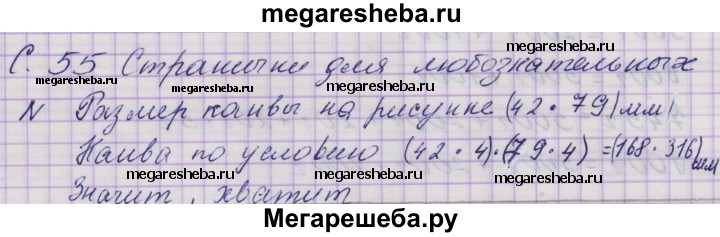 megaresheba.ru
С. 55 Странички для любознательных
N Размер канвы на рисунке (42 · 79) мм
Канва по условию (42 · 4) · (79 · 4) = (168 · 316) мм
Значит, хватит
megaresheba.ru
megaresheba.ru
megaresheba.ru
megaresheba.ru
megaresheba.ru
megaresheba.ru
megaresheba.ru
megaresheba.ru
Мегарешеба.ру